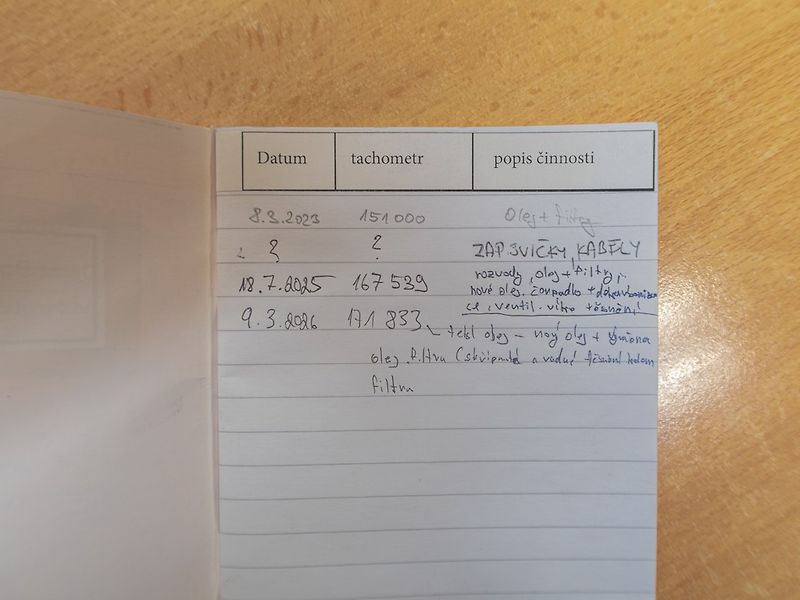 Datum tachometr popis činnosti
8.3.2023 151 000 Olej + filtry
? ? ZAP. SVÍČKY, KABELY
18.7.2025 167 539 rozvody, olej + filtry,
nové olej. čerpadlo +
ventil. víko + těsnění
9.3.2026 171 833 tekl olej - nový olej + výměna
olej. filtru ( a vadné těsnění kolem
filtru